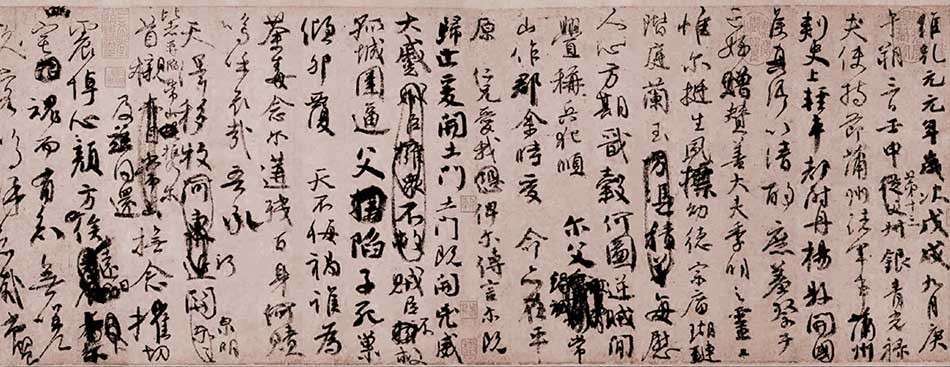 維乾元元年歲次戊戌九月庚
午朔三日壬申第十三從父叔銀青光祿
夫使持節蒲州諸軍事蒲州
刺史上輕車都尉丹楊縣開國
侯真卿以清酌庶羞祭于
亡姪贈贊善大夫季明之靈曰
惟爾挺生夙標幼德宗廟瑚璉
階庭蘭玉方憑積善每慰
人心方期戩穀何圖逆賊閒
釁稱兵犯順 爾父竭誠常
山作郡余時受 命亦在平
原 仁兄愛我俾爾傳言爾既
歸止爰開土門土門既開凶威
大蹙賊臣擁眾不救賊臣不救
孤城圍逼父陷子死巢
傾卵覆 天不悔禍誰為
荼毒念爾遘殘百身何贖
嗚呼哀哉吾承
天澤移牧河東近河關泉明
比者再陷常山攜爾
首櫬及茲同還撫念摧切
震悼心顏方俟遠日
宅魂而有知無嗟
久客嗚呼哀哉尚饗